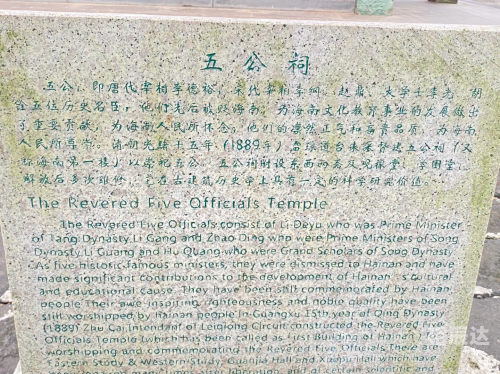 五公祠
五公，即唐代宰相李德裕，宋代宰相李纲、赵鼎、大学士李光、胡
铨五位历史名臣，他们先后被贬海南，为海南文化教育事业的发展做出
了重要贡献，为海南人民所怀念，他们的凛然正气和高贵品质，为海南
人民所尊崇。清朝光绪十五年（1889年）雷琼道台朱采督建五公祠（又
称海南第一楼）以祭祀五公。五公祠附设东西两斋及观稼堂、学圃堂，
解放后多次维修，它在古建筑历史学上具有一定的科学研究价值。
The Revered Five Officials Temple
The Revered Five Officials consist of Li Deyu who was Prime Minister
of Tang Dynasty, Li Gang and Zhao Ding who were Prime Ministers of Song
Dynasty, Li Guang and Hu Quang who were Grand Scholars of Song Dynasty.
As five historic famous ministers, they were dismissed to Hainan and have
made significant contributions to the development of Hainan's cultural
and educational cause. They have been still commemorated by Hainan
people. Their awe-inspiring righteousness and noble quality have been
still worshipped by Hainan people. In Guangxu 15th year of Qing Dynasty
(1889) Zhu Cai, Intendant of Leiqiong Circuit constructed the Revered Five
Officials Temple (which has been called as First Building of Hainan) for
worshipping and commemorating the Revered Five Officials. There are
Eastern Study & Western Study, Guanjia Hall and Xuepu Hall which have